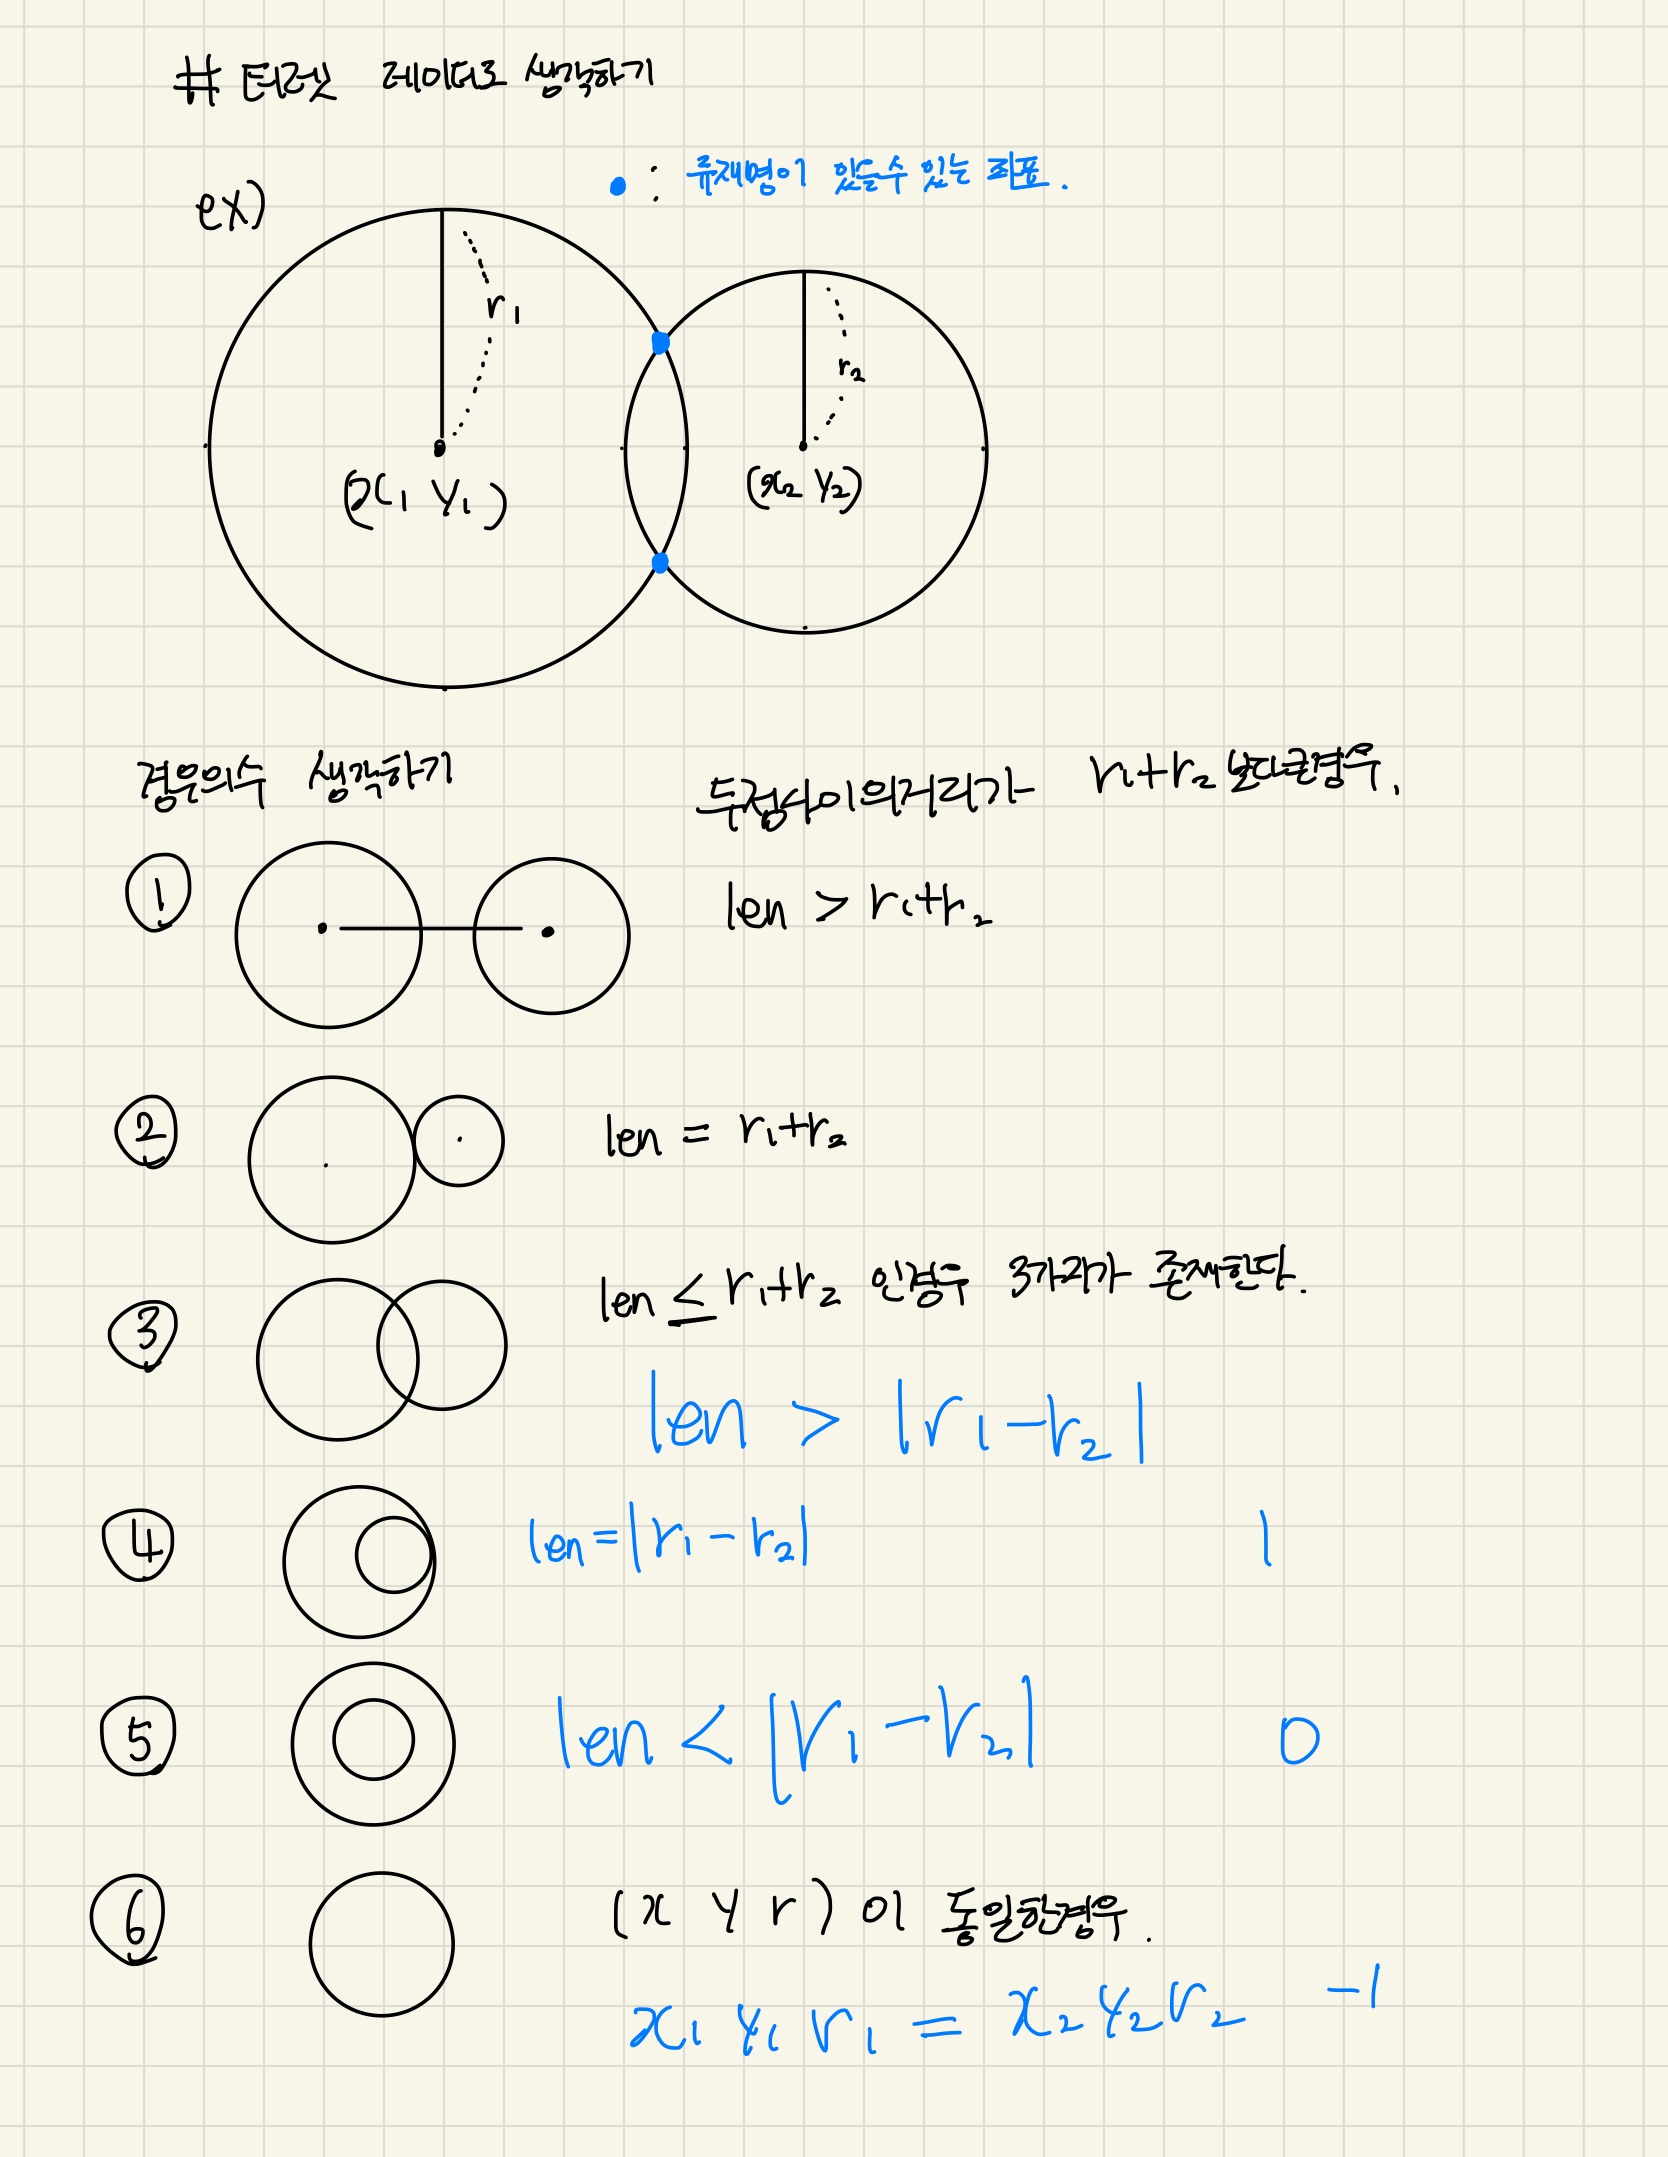 # 터렛 레이더로 생각하기
● : 류재명이 있을수 있는 좌표.
ex)
r1
r2
(x1 y1)
(x2 y2)
경우의수 생각하기
두점사이의거리가 r1+r2 보다큰경우.
① len > r1+r2
② len = r1+r2
③ len ≤ r1+r2 인경우 3가지가 존재한다.
len > |r1-r2|
④ len=|r1-r2| 1
⑤ len < |r1-r2| 0
⑥ (x y r) 이 동일한경우.
x1 y1 r1 = x2 y2 r2 -1